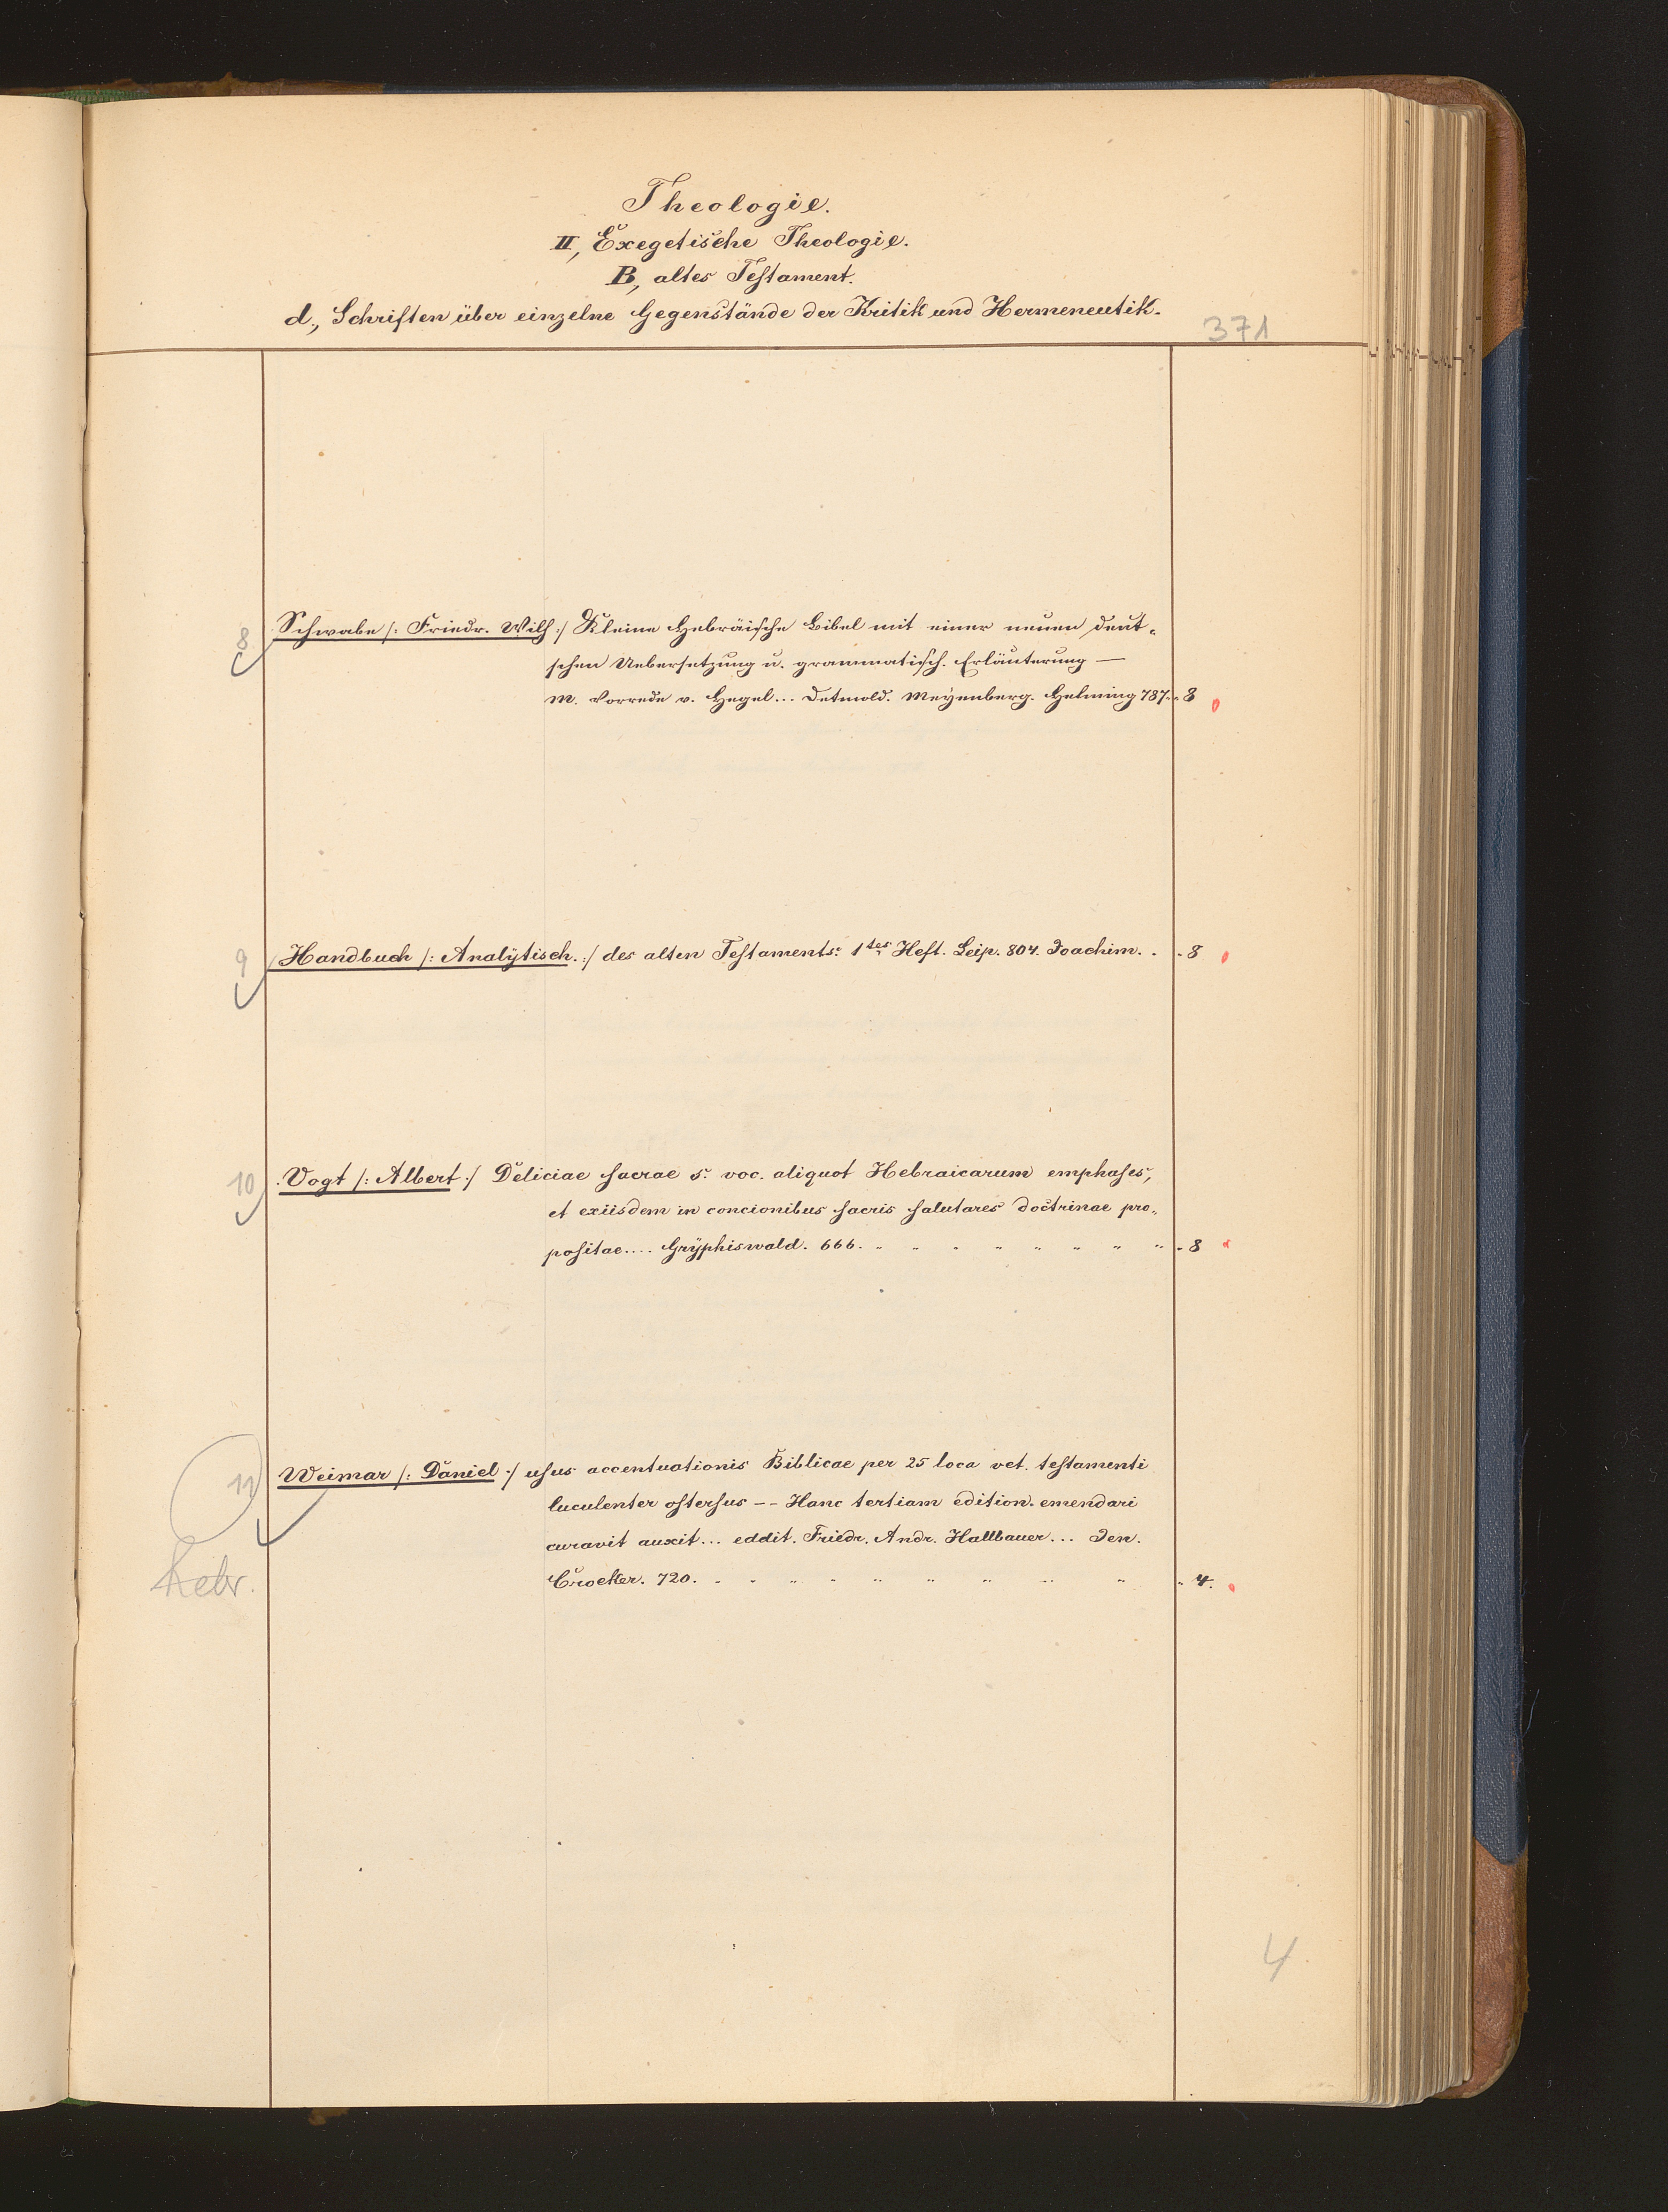 Theologie.
II, Exegetische Theologie.
B, altes Testament.
d., Schriften über einzelne Gegenstände der Kritik und Hermeneutik.
371
8 Schwabe /: Friedr. Wilh :/ Kleine Hebräische Bibel mit einer neuen deut-
schen Uebersetzung u. grammatisch. Erläuterung —
M. Vorrede v. Hegel... Detmold. Meyenberg. Helming 787. - 8
9 Handbuch /: Analytisch. :/ des alten Testaments. 1tes Heft. Leip. 804. Joachim. - - 8
10 Vogt /: Albert :/ Deliciae sacrae s. voc. aliquot Hebraicarum emphases,
et exiisdem in concionibus sacris salutares doctrinae pro-
positae.... Gryphiswald. 666. - 8
11 Weimar /: Daniel :/ usus accentuationis Biblicae per 25 loca vet. testamenti
luculenter ostersus -- Hanc tertiam edition. emendari
curavit auxit... eddit. Friedr. Andr. Hallbauer... Jen.
hebr. Crocker. 720. - 4.
4